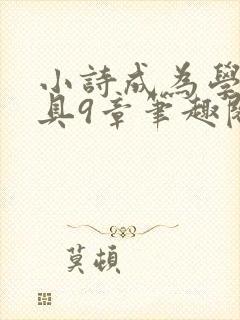 小詩成為學
具9章筆趣閱
莫頓